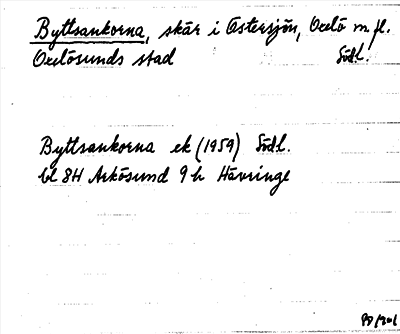 Byttsankorna, skär i Östersjön, Oxelö m fl.
Oxelösunds stad Södl.
Byttsankorna ek (1959) Södl.
bl 8H Arkösund 9h Hävringe